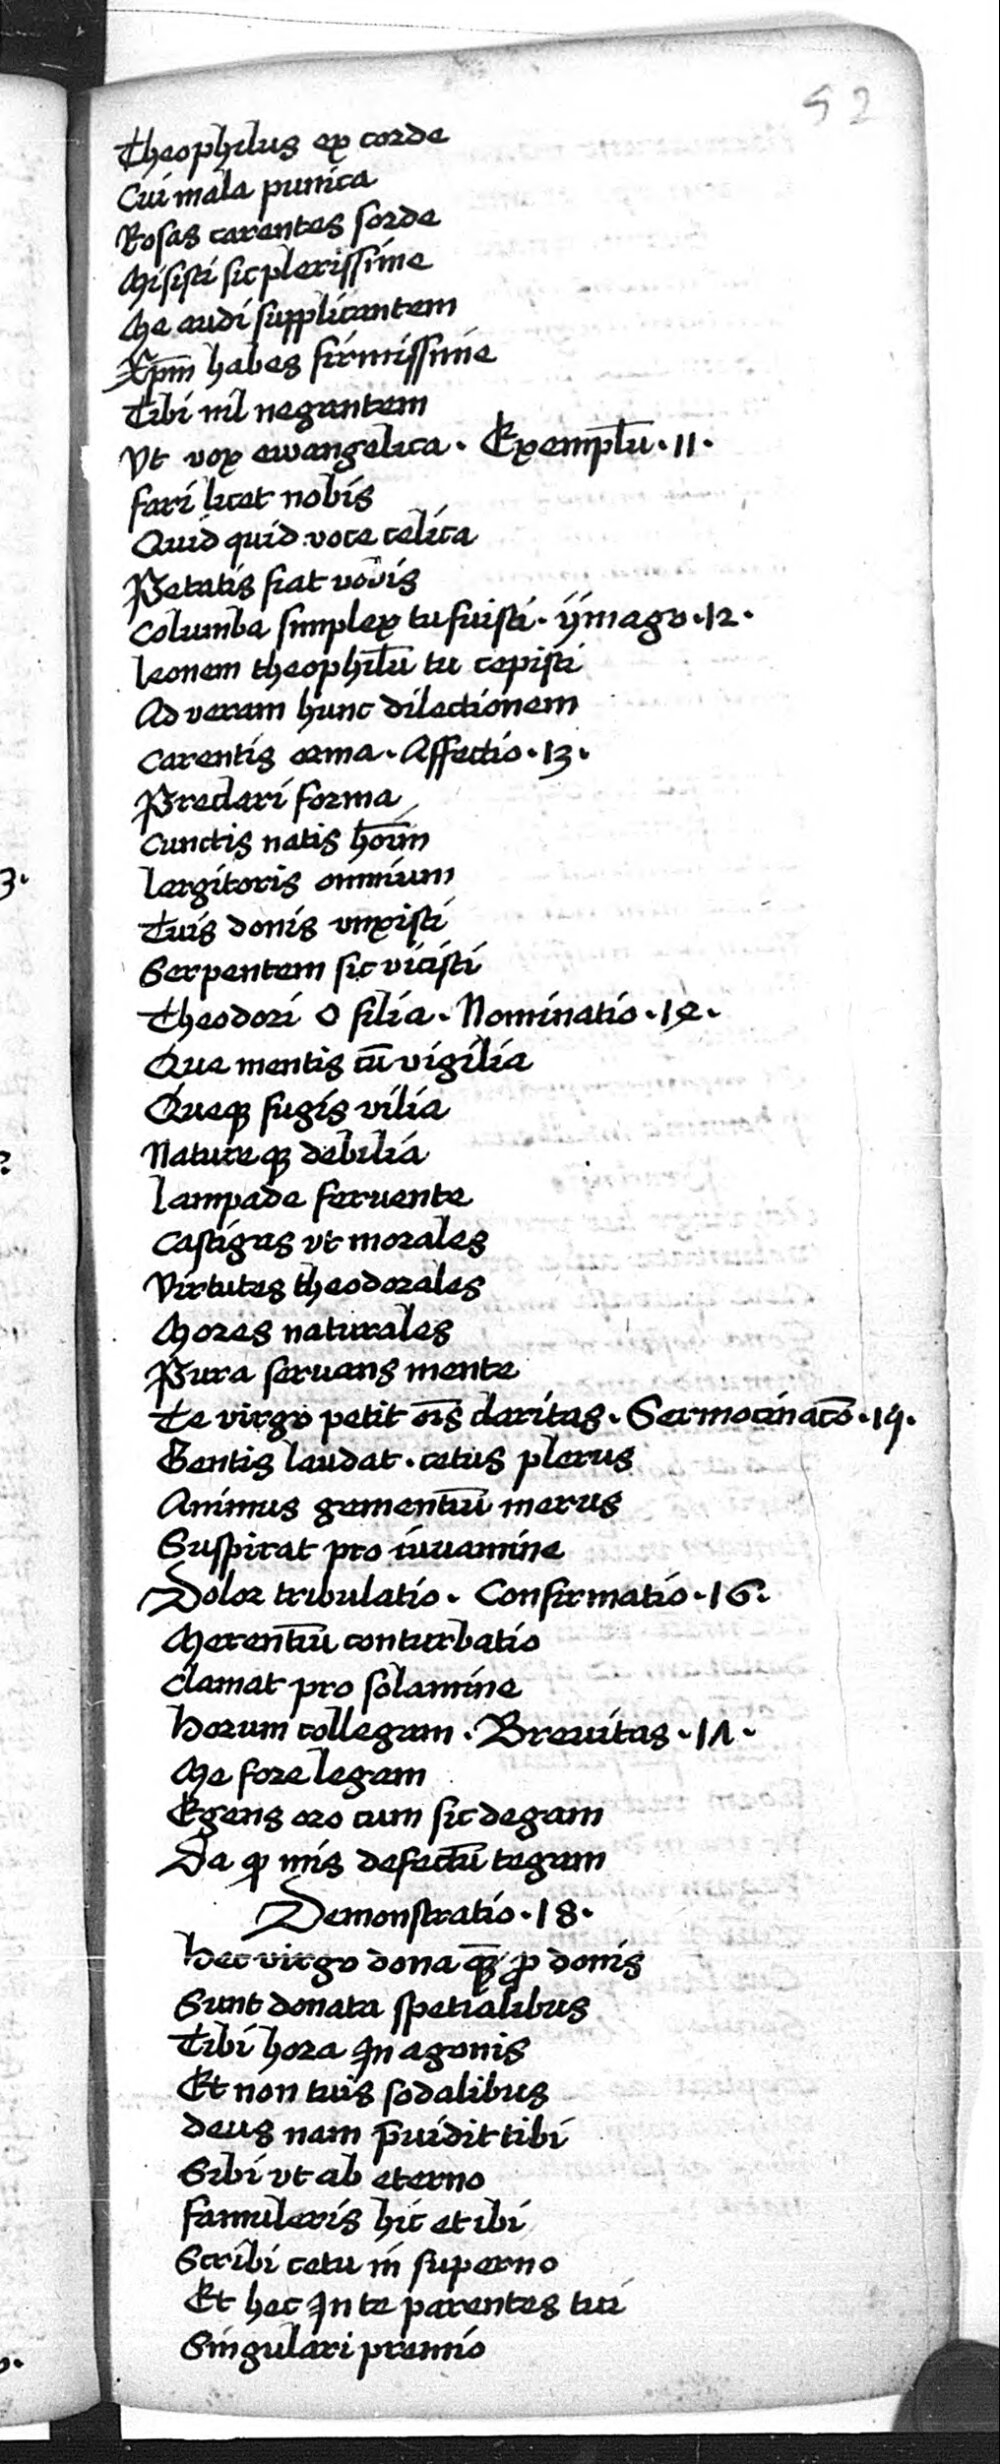 52
Theophilus ex corde
Cui mala punica
Rosas carentes sorde
Misisti sic plerissime
Me audi supplicantem
Xp̄m habes firmissime
Tibi nil negantem
Vt vox ewangelica · Exemplū · 11 ·
fari licet nobis
Quid quid voce celica
Petatis fiat vobis
Columba simplex tu fuisti · ymago · 12 ·
leonem theophilū tu cepisti
Ad veram hunc dilectionem
carentis arma · Affectio · 13 ·
Preclari forma
cunctis natis hoīm
largitoris omnium
Tuis donis vnxisti
Serpentem sic vicisti
Theodori O filia · Nominatio · 14 ·
Que mentis cū vigilia
Queqȝ fugis vilia
Natureqȝ debilia
lampade feruente
castigas vt morales
Virtutes theodorales
Mores naturales
Pura seruans mente
Te virgo petit oīs claritas · Sermocinac̄o · 15 ·
Gentis laudat · cetus plerus
Animus gementiū merus
Suspirat pro iuuamine
Dolor tribulatio · Confirmatio · 16 ·
Merentiū conturbatio
clamat pro solamine
horum collegam · Breuitas · 17 ·
Me fore legam
Egens oro cum sic degam
Da qȝ mis defectū tegam
Demonstratio · 18 ·
hec virgo dona p̄ donis
Sunt donata spetialibus
Tibi hora In agonis
Et non tuis sodalibus
deus nam p̄uidit tibi
Sibi vt ab eterno
famuleris hic et ibi
Scribi cetu in superno
Et hec In te parentes tui
Singulari premio
3 ·